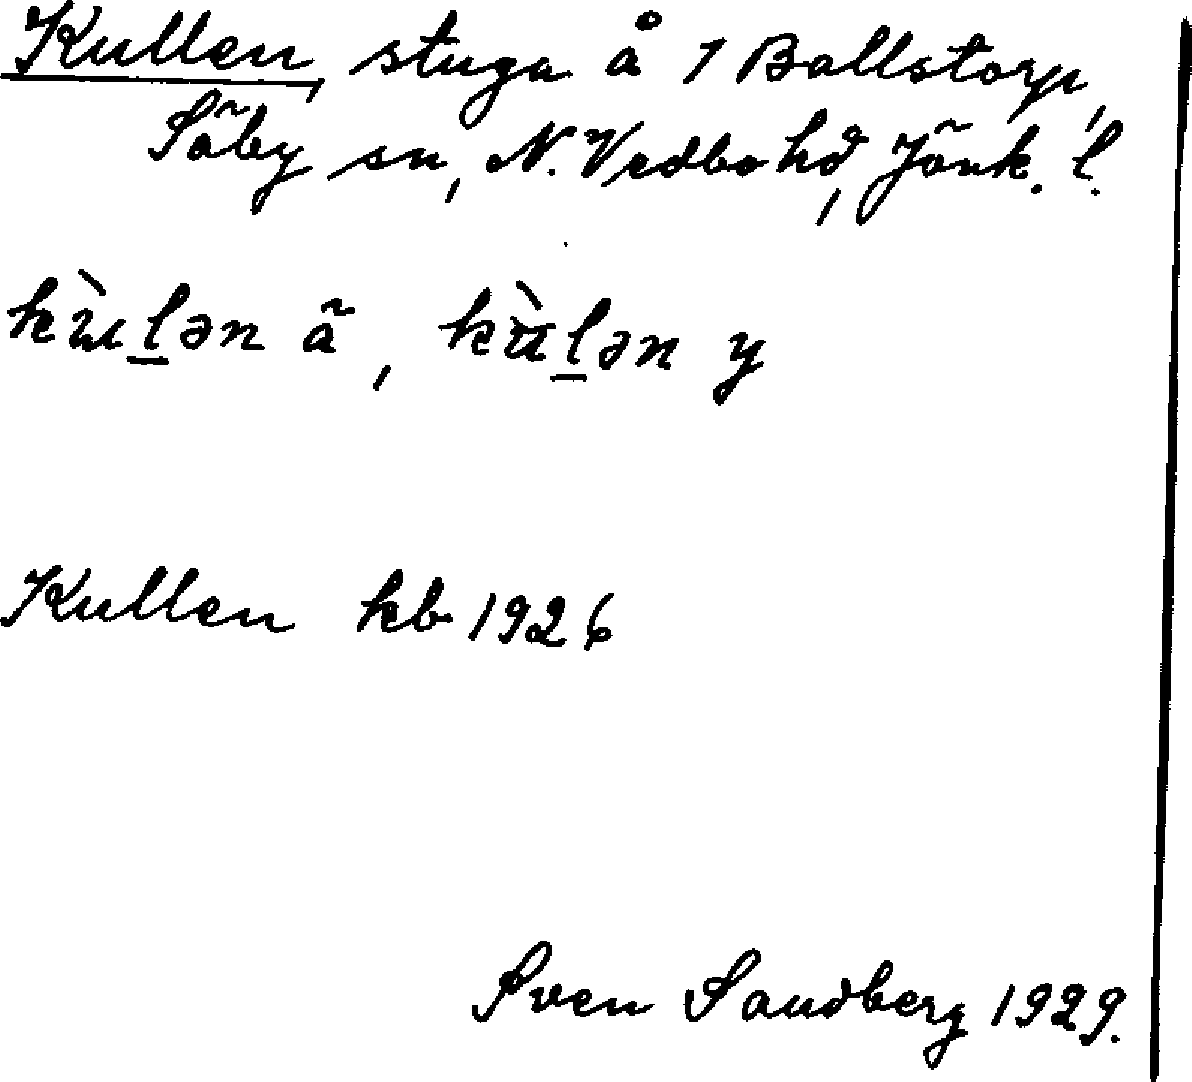 Kullen, stuga å 1 Ballstorp,
Säby sn, N. Vedbo hd, Jönk. l.
kùlən ä, kùlən y
Kullen kb 1926
Sven Sandberg 1929.